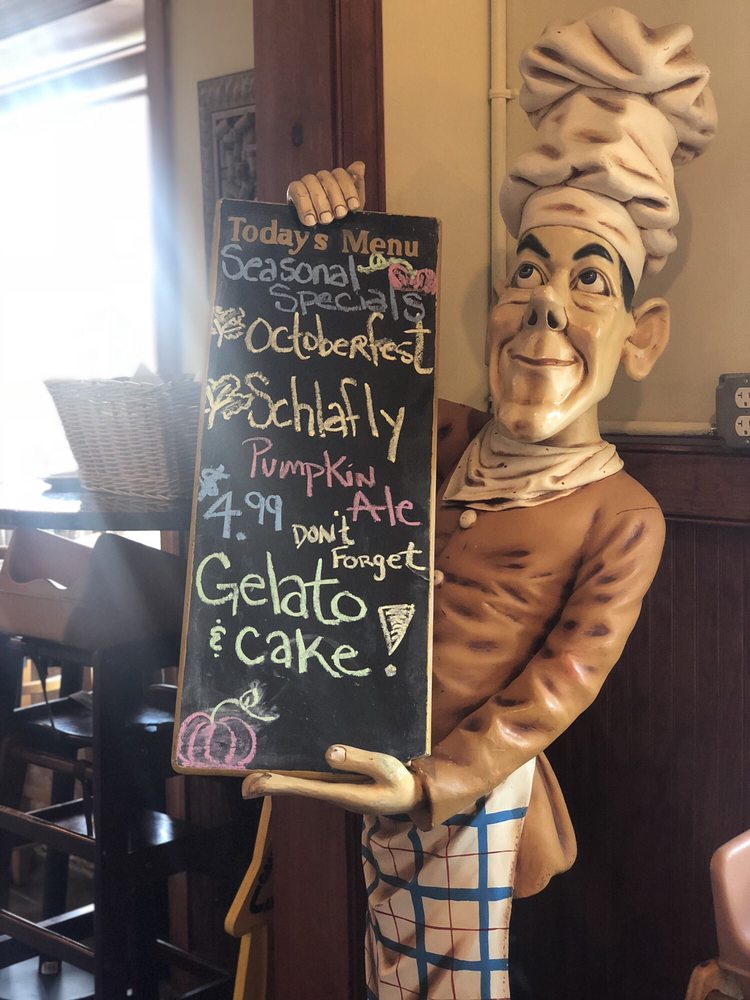 Today's Menu
Seasonal
Specials
Octoberfest
Schlafly
Pumpkin
Ale
$4.99
Don't
Forget
Gelato
& cake!